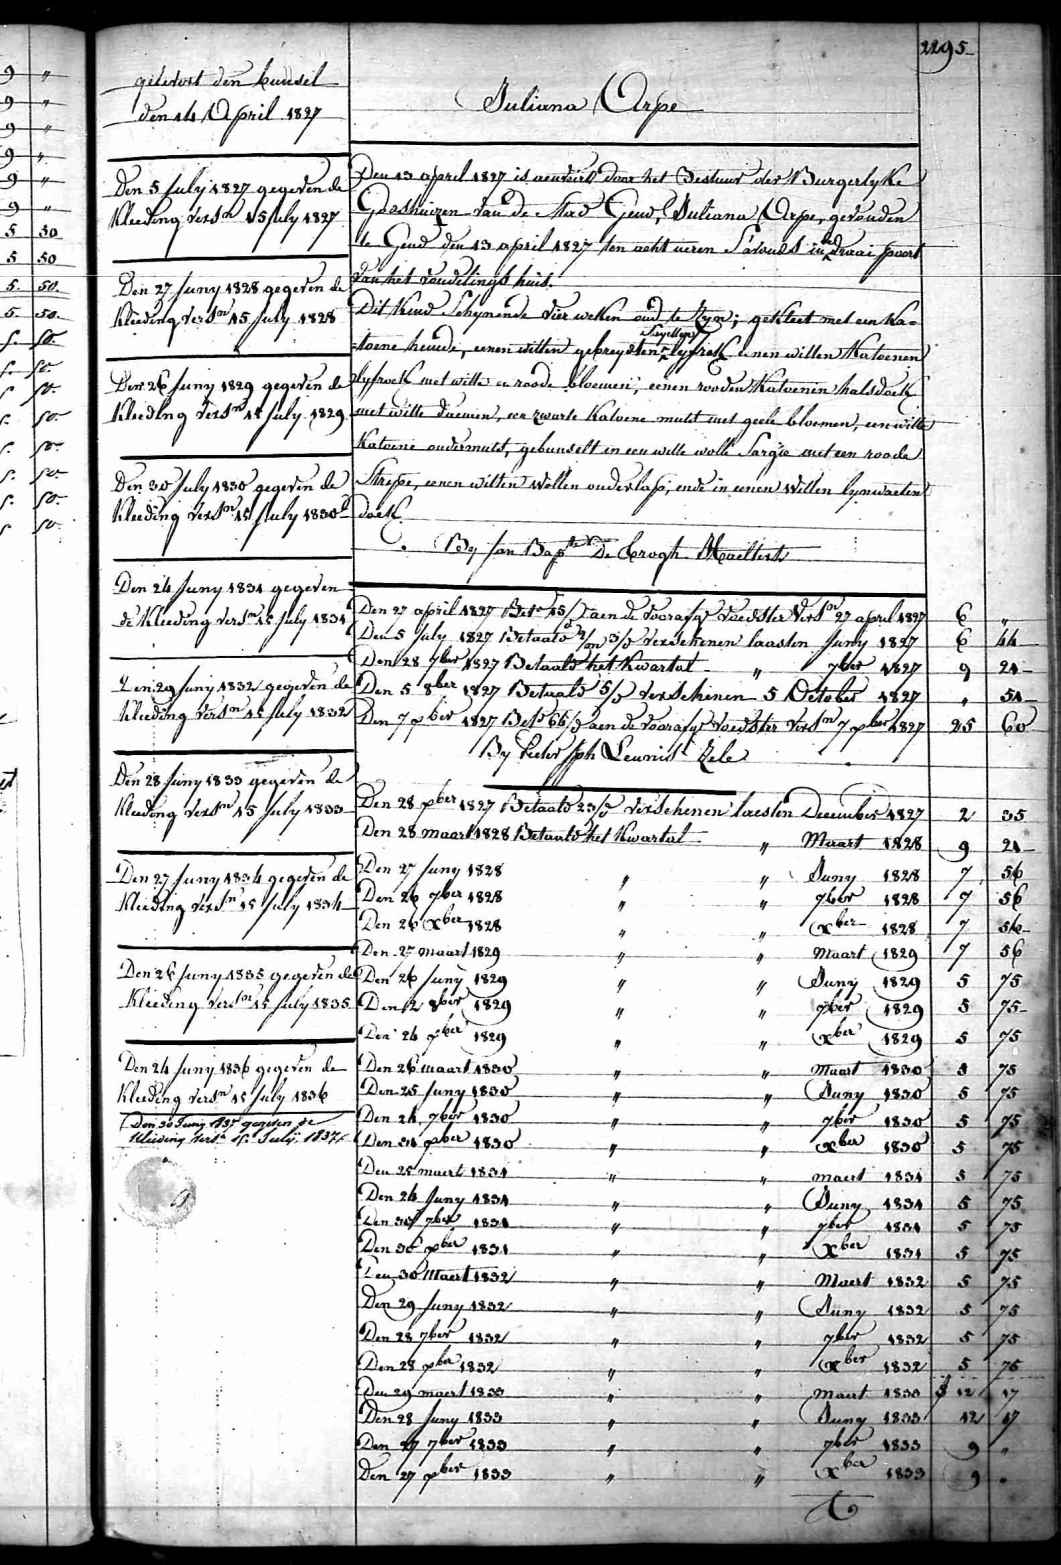 2295
geleverd den bundel
den 14 April 1827
Juliana Arpe
Den 5 July 1827 gegeven de
Kleeding versn 15 July 1827
Den 27 Juny 1828 gegeven de
Kleeding versn 15 July 1828
Den 26 Juny 1829 gegeven de
Kleeding versn 15 July 1829
Den 30 July 1830 gegeven de
Kleeding versn 15 July 1830
Den 24 Juny 1831 gegeven
de Kleeding versn 15 July 1831
Den 29 Juny 1832 gegeven de
Kleeding versn 15 July 1832
Den 28 Juny 1833 gegeven de
Kleeding versn 15 July 1833
Den 27 Juny 1834 gegeven de
Kleeding versn 15 July 1834
Den 26 Juny 1835 gegeven de
Kleeding versn 15 July 1835
Den 24 Juny 1836 gegeven de
Kleeding versn 15 July 1836
Den 30 Juny 1837 gegeven de
Kleeding versn 15 July 1837
Den 13 april 1827 is aenveird door het Bestuur der Burgerlyke
Godshuizen van de Stad Gend, Juliana Arpe, gevonden
te Gend den 13 april 1827 ten acht uren S'avonds in de draai poort
van het vondelings huis.
Dit Kind Schynende vier weken oud te Zyn; gekleet met een Ka-
toene hemde, eenen witten gebreyden Sayetten lyfrok eenen witten Katoenen
lyfrock met witte en roode bloemen, eenen rooden Katoenen halsdoek
met witte, een zwarte Katoene muts met geele bloemen, een witte
Katoene ondermuts, gebunselt in een witte wolle Sargie met een roode
Strepe, eenen witten wollen onderlap, ende in eenen witten lynwaeten
doek
By Jan Bapte De Crogh Maeltert
Den 27 april 1827 Bete 15/ aen de voorafge voedster versn 27 april 1827 6 "
Den 5 July 1827 Betaald 2/m 3/ verschenen laasten Juny 1827 6 44
Den 28 7ber 1827 Betaald het Kwartal " 7ber 1827 9 21
Den 5 8ber 1827 Betaald 5/ verschenen 5 October 1827 " 51
Den 7 xber 1827 Bete 66/ aen de voorafge voedster versn 7 xber 1827 25 60
By Pieter Jph Leunis Zele
Den 28 xber 1827 Betaald 23/ verschenen laesten December 1827 2 35
Den 28 maart 1828 Betaald het Kwartal " Maart 1828 9 21
Den 27 Juny 1828 " " Juny 1828 7 56
Den 26 7ber 1828 " " 7ber 1828 7 56
Den 26 xber 1828 " " xber 1828 7 56
Den 27 maart 1829 " " Maart 1829 7 56
Den 26 Juny 1829 " " Juny 1829 5 75
Den 2 8ber 1829 " " 7ber 1829 5 75
Den 24 xber 1829 " " xber 1829 5 75
Den 26 maart 1830 " " Maart 1830 5 75
Den 25 Juny 1830 " " Juny 1830 5 75
Den 24 7ber 1830 " " 7ber 1830 5 75
Den 31 xber 1830 " " xber 1830 5 75
Den 25 maert 1831 " " maert 1831 5 75
Den 24 Juny 1831 " " Juny 1831 5 75
Den 30 7ber 1831 " " 7ber 1831 5 75
Den 30 xber 1831 " " xber 1831 5 75
Den 30 Maert 1832 " " Maert 1832 5 75
Den 29 Juny 1832 " " Juny 1832 5 75
Den 28 7ber 1832 " " 7ber 1832 5 75
Den 28 xber 1832 " " xber 1832 5 75
Den 29 maert 1833 " " maert 1833 12 17
Den 28 Juny 1833 " " Juny 1833 12 17
Den 27 7ber 1833 " " 7ber 1833 9 "
Den 27 xber 1833 " " xber 1833 9 "